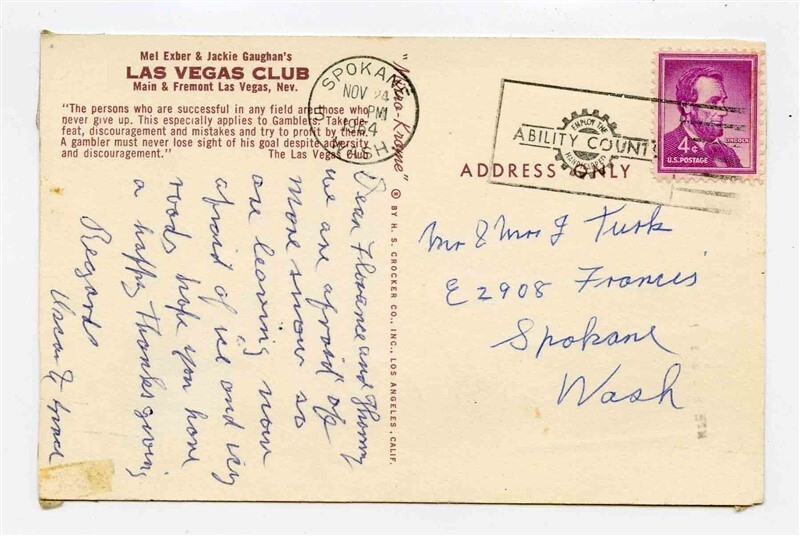 Mel Exber & Jackie Gaughan's
LAS VEGAS CLUB
Main & Fremont Las Vegas, Nev.
"The persons who are successful in any field are those who
never give up. This especially applies to Gamblers. Take de-
feat, discouragement and mistakes and try to profit by them.
A gambler must never lose sight of his goal despite adversity
and discouragement." The Las Vegas Club
Dear Florence and
we are afraid of
more snow so
are leaving now
afraid of ice and icy
roads hope you have
a happy Thanksgiving
Regards
"Mirro-Krome" ® BY H. S. CROCKER CO., INC., LOS ANGELES, CALIF.
SPOKANE
NOV 24
PM
1964
WASH.
ABILITY COUNTS
EMPLOY THE
HANDICAPPED
LINCOLN
4¢
U.S. POSTAGE
ADDRESS ONLY
Mr & Mrs J Turk
E 2908 Francis
Spokane
Wash